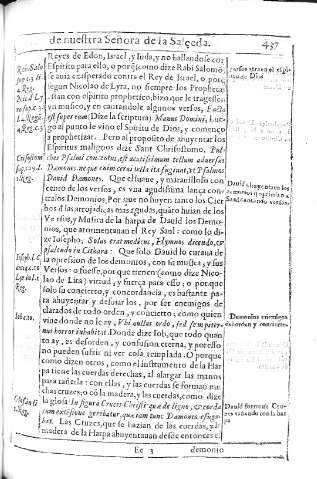 de nuestra Señora de la Salceda.
437
Reyes de Edon, Israel, y Iuda, y no hallandose con
Espiritu para ello, o porq̃ (como dize Rabi Salomõ)
se auia exasperado contra el Rey de Israel, o porq̃
segun Nicolao de Lyra, no siempre los Prophetas
estan con espiritu prophetico; hizo que le traxessen
vn musico, y en cantandole algunos versos, Facta
est super eum (Dize la scriptura) Manus Domini, Lue-
go al punto le vino el Spiritu de Dios, y començo
a prophetizar. Pero al proposito de ahuyentar los
Espiritus malignos dize Sant Chrisostomo,
Psalmi concentus, est acutissimum telum aduersus
Dæmones, neque enim certa illa sic fugiunt, vt Psalmos
Dauid Dæmones. Que el suaue, y marauilloso con-
cento de los versos, es vna agudissima lança con-
tra los Demonios, Por que no huyen tanto los Cier-
bos d las arrojadiças mas agudas, quãto huian de los
Versos, y Musica de la harpa de Dauid los Demo-
nios, que atormentauan el Rey Saul: como lo di-
ze Iosepho, Solus erat medicus, Hymnos dicendo, &
psallendo in Cithara: Que solo Dauid lo curaua de
la opresion de los demonios, con su musica, y sus
Versos: o fuesse, por que tienen (como dize Nico-
lao de Lira) virtud, y fuerça para esso; o porque
solo su concierto, y concordancia, es bastante pa-
ra ahuyentar, y desuiar los, por ser enemigos de-
clarados de todo orden, y concierto; como quien
viue donde no le ay, Vbi nullus ordo, sed sempiter-
nus horror inhabitat. Donde dize Iob, que todo quan
to ay, es desorden, y confusion eterna, y por esso
no pueden sufrir ni ver cosa templada. O porque
como dizen otros, como el instrumento de la Har
pa tiene las cuerdas derechas, al alargar las manos
para tañerla: con ellas, y las cuerdas se formauã mu
chas cruzes; o cõ la madera, y las cuerdas, como dize
la glosa In figura Crucis Christi quæ de ligno, & corda
rum extensione gerebatur, qua cum tunc Dæmones effuga-
bat. Las Cruzes, que se hazian de las cuerdas, y la
madera de la Harpa ahuyentauan desde entonces el
Ee 3
demonio
de Dios
Dauid ahuyentaua los
demonios
Sant cantando versos.
Iob. 10.
Demonios enemigos
de orden y concierto.
Dauid formaua Cru-
zes tañendo con la har
pa